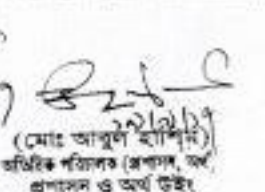 (মোঃ আবুল হাশিম)
অতিরিক্ত পরিচালক (প্রশাসন, অর্থ)
প্রশাসন ও অর্থ উইং